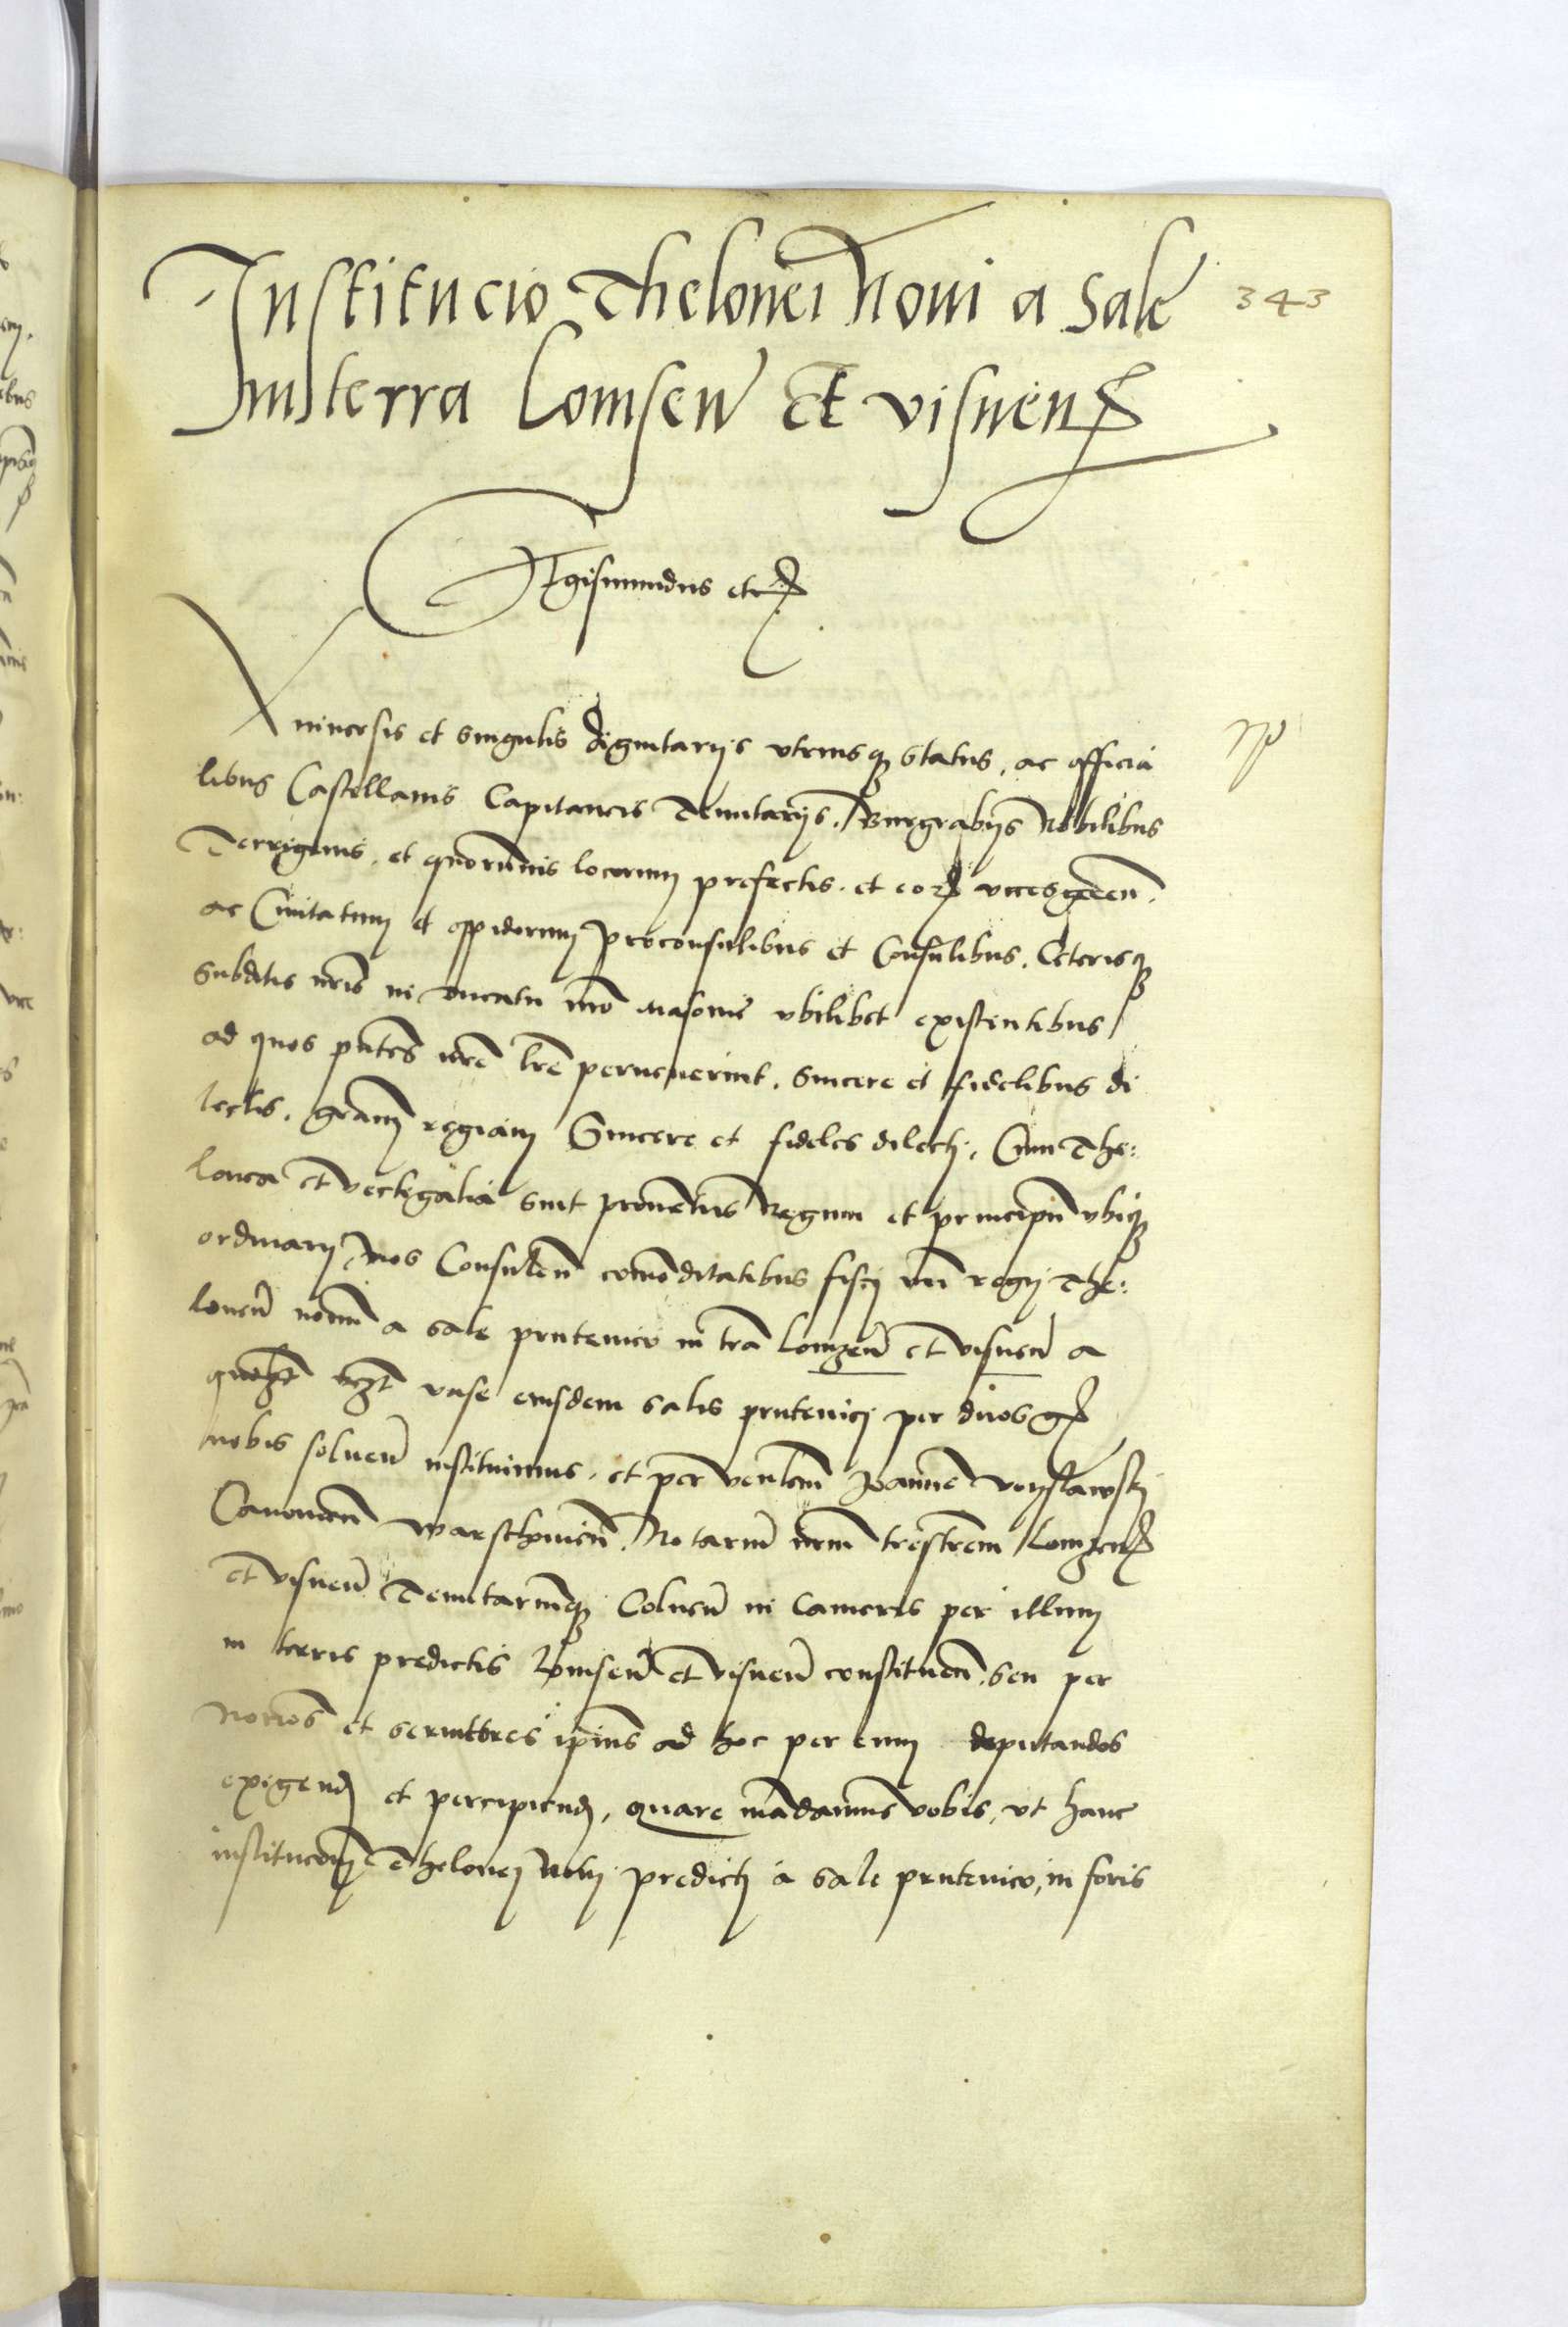 Institucio Thelonei Noui a Sale
In terra Lomsen̄ Et visnen̄
343
Sigismundus etc
Vniuersis et singulis dignitarijs vtriusqꝫ status, ac officia
libus Castellanis Capitaneis Tenutarijs, Burgrabijs Nobilibus
Terrigenis, et quorumuis locorum prefectis, et eoꝝ vicesgeren̄.
ac Ciuitatum et oppidorum proconsulibus et Consulibus, Ceterisqꝫ
Subditis nr̄is in ducatu nr̄o Masouie vbilibet existentibus
ad quos pn̄tes nr̄e lr̄e peruenerint, Sincere et fidelibus di
lectis, gr̄am regiam Sincere et fideles dilecti, Cum The:
lonea et vectigalia sint prouentus Regum et principū vbiqꝫ
ordinarij, Nos Consulen̄ com̄oditatibus fisci nr̄i regij The:
loneū nouū a sale prutenico in tr̄a Lomzen̄ et visnen̄ a
quolꝫt vase eiusdem salis prutenici per duos gꝝ
nobis soluen̄ instituimus, et per ven̄lem Joannē voyslawskj
Canonicū Warschouien̄. Notariū nr̄m tr̄estrem Lomzen̄
et visnen̄ Tenutariumqꝫ Colnen̄ in Cameris per illum
in terris predictis Lomsen̄ et visnen̄ constituen̄. seu per
not̄ios et scriptores ip̄ius ad hoc per eum deputandos
exigend et percipiend, quare mādamus vobis, vt hanc
institucōem Thelonej Noui predictj a sale prutenico, in foris